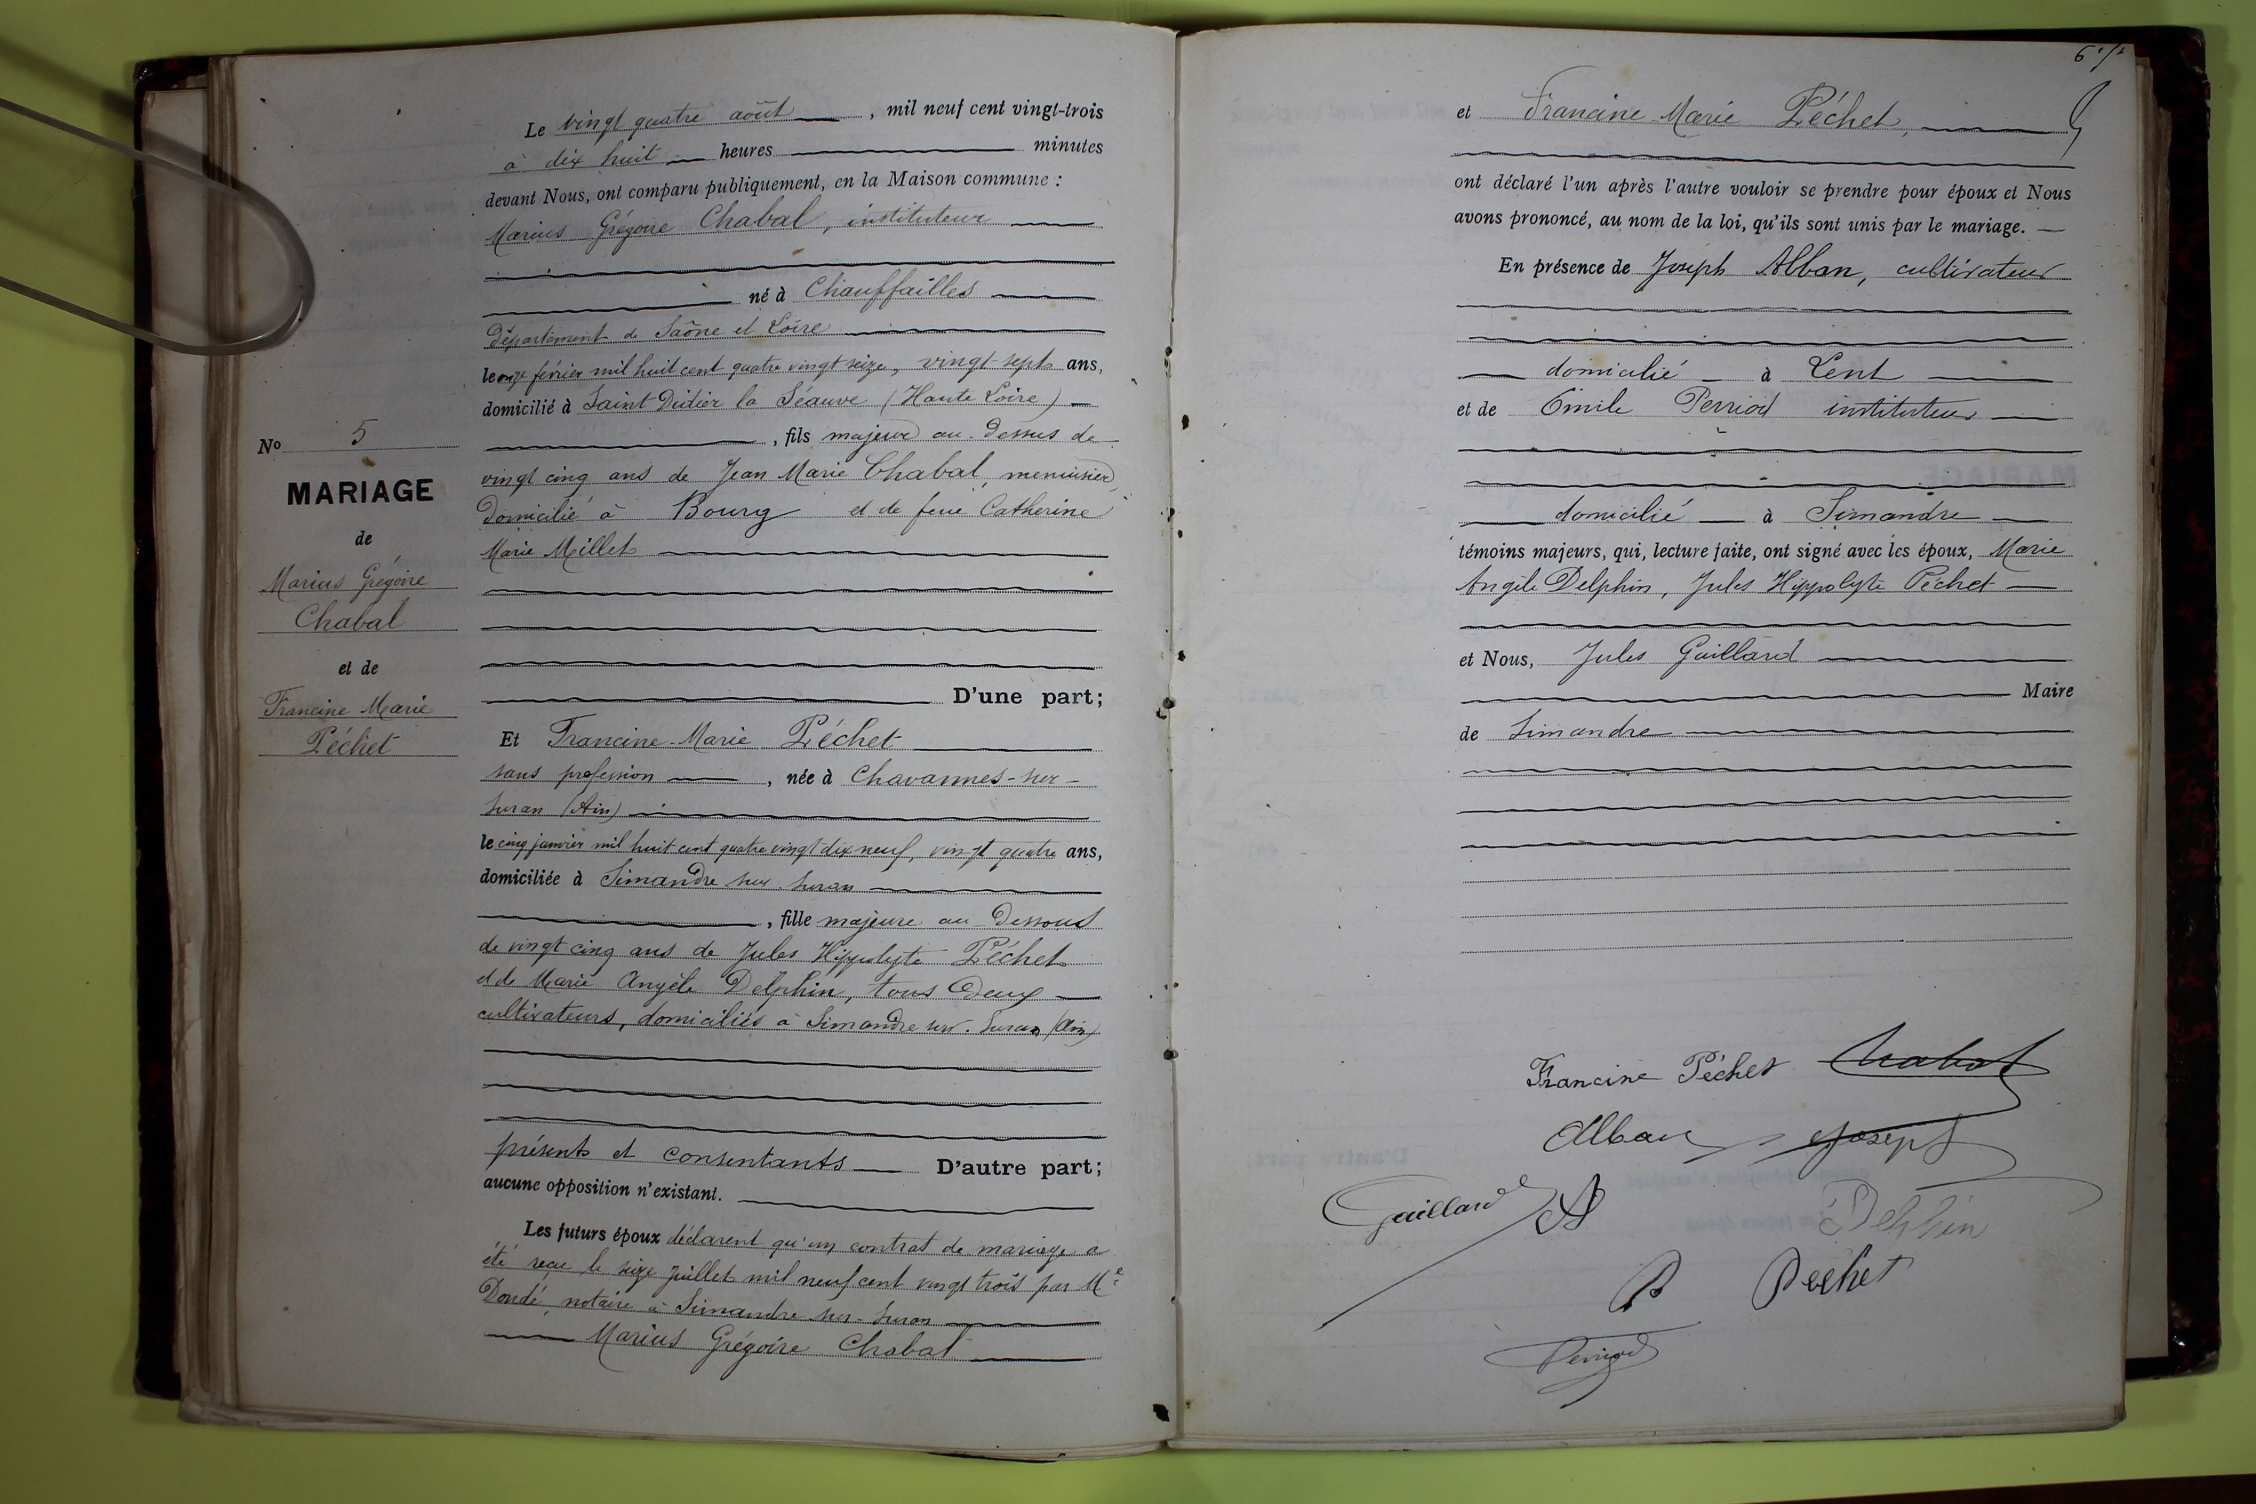 Le vingt quatre août, mil neuf cent vingt-trois
à dix huit heures minutes
devant Nous, ont comparu publiquement, en la Maison commune :
Marius Grégoire Chabal, instituteur
né à Chauffailles
Département de Saône et Loire
le onze février mil huit cent quatre vingt seize, vingt-sept ans,
domicilié à Saint Didier la Séauve (Haute Loire)
, fils majeur au-dessus de
vingt cinq ans de Jean Marie Chabal, menuisier,
domicilié à Bourg et de feue Catherine
Marie Millet
No 5
MARIAGE
de
Marius Grégoire
Chabal
et de
Francine Marie
Péchet
D'une part;
Et Francine-Marie Péchet
sans profession, née à Chavannes-sur-
Suran (Ain)
le cinq janvier mil huit cent quatre vingt-dix neuf, vingt quatre ans,
domiciliée à Simandre sur-Suran
, fille majeure au dessous
de vingt cinq ans de Jules Hippolyte Péchet
et de Marie Angèle Delphin, tous deux
cultivateurs, domiciliés à Simandre sur-Suran (Ain)
présents et consentants D'autre part;
aucune opposition n'existant.
Les futurs époux déclarent qu'un contrat de mariage a
été reçu le seize juillet mil neuf cent vingt trois par Me
notaire à Simandre-sur-Suran
Marius Grégoire Chabal
et Francine-Marie Péchet,
ont déclaré l'un après l'autre vouloir se prendre pour époux et Nous
avons prononcé, au nom de la loi, qu'ils sont unis par le mariage.
En présence de Joseph Alban, cultivateur
domicilié à Lent
et de Emile Perriod instituteur
domicilié à Simandre
témoins majeurs, qui, lecture faite, ont signé avec les époux, Marie
Angèle Delphin, Jules Hippolyte Péchet
et Nous, Jules Guillard
Maire
de Simandre
Francine Péchet Chabal
Alban Joseph
Guillard
Delphin
Péchet
Perriod